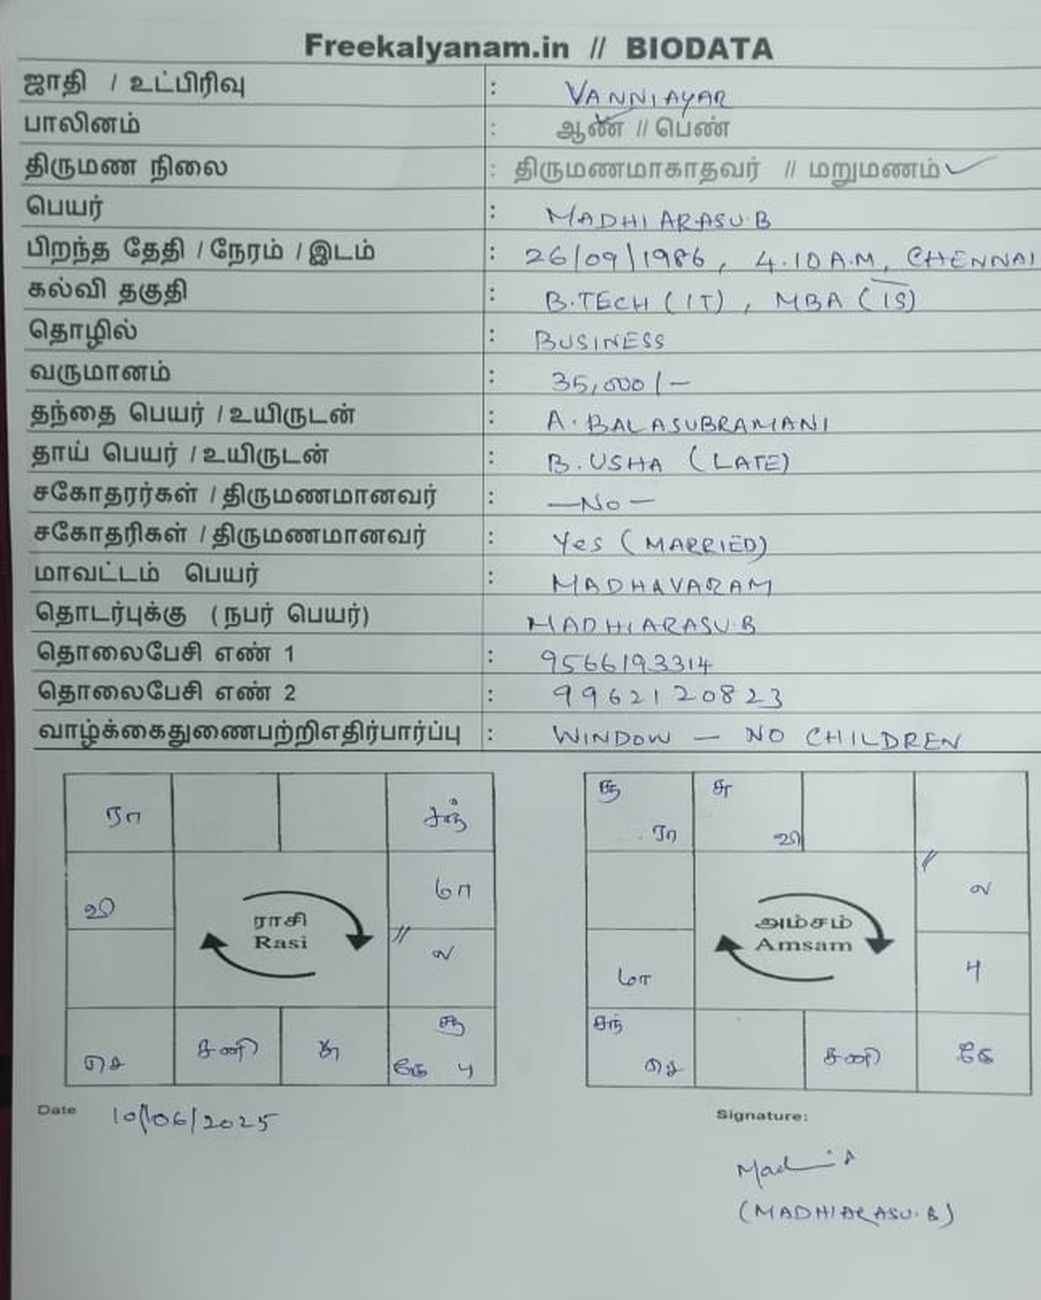 Freekalyanam.in // BIODATA
ஜாதி / உட்பிரிவு : VANNIAYAR
பாலினம் : ஆண் // பெண்
திருமண நிலை : திருமணமாகாதவர் // மறுமணம் ✓
பெயர் : MADHIARASU.B
பிறந்த தேதி / நேரம் / இடம் : 26/09/1986, 4.10 A.M, CHENNAI
கல்வி தகுதி : B.TECH (IT), MBA (IS)
தொழில் : BUSINESS
வருமானம் : 35,000/-
தந்தை பெயர் / உயிருடன் : A. BALASUBRAMANI
தாய் பெயர் / உயிருடன் : B. USHA (LATE)
சகோதரர்கள் / திருமணமானவர் : —No—
சகோதரிகள் / திருமணமானவர் : Yes (MARRIED)
மாவட்டம் பெயர் : MADHAVARAM
தொடர்புக்கு (நபர் பெயர்) MADHIARASU.B
தொலைபேசி எண் 1 : 9566193314
தொலைபேசி எண் 2 : 9962120823
வாழ்க்கைதுணைபற்றிஎதிர்பார்ப்பு : WINDOW — NO CHILDREN
ரா சந்
வி மா
ராசி
Rasi
//
ல
செ சனி சு
கே பு
ரா வி
// ல
அம்சம்
Amsam
மா பு
சந்
செ சனி கே
Date 10/06/2025
Signature:
(MADHIARASU.B)